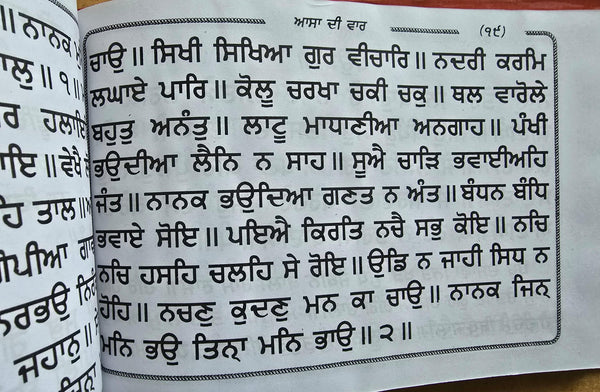 ਆਸਾ ਦੀ ਵਾਰ
(੧੯)
ਚਾਉ ॥ ਸਿਖੀ ਸਿਖਿਆ ਗੁਰ ਵੀਚਾਰਿ ॥ ਨਦਰੀ ਕਰਮਿ
ਲਘਾਏ ਪਾਰਿ ॥ ਕੋਲੂ ਚਰਖਾ ਚਕੀ ਚਕੁ ॥ ਥਲ ਵਾਰੋਲੇ
ਬਹੁਤੁ ਅਨੰਤੁ ॥ ਲਾਟੂ ਮਾਧਾਣੀਆ ਅਨਗਾਹ ॥ ਪੰਖੀ
ਭਉਦੀਆ ਲੈਨਿ ਨ ਸਾਹ ॥ ਸੂਐ ਚਾੜਿ ਭਵਾਈਅਹਿ
ਜੰਤ ॥ ਨਾਨਕ ਭਉਦਿਆ ਗਣਤ ਨ ਅੰਤ ॥ ਬੰਧਨ ਬੰਧਿ
ਭਵਾਏ ਸੋਇ ॥ ਪਇਐ ਕਿਰਤਿ ਨਚੈ ਸਭੁ ਕੋਇ ॥ ਨਚਿ
ਨਚਿ ਹਸਹਿ ਚਲਹਿ ਸੇ ਰੋਇ ॥ ਉਡਿ ਨ ਜਾਹੀ ਸਿਧ ਨ
ਹੋਹਿ ॥ ਨਚਣੁ ਕੁਦਣੁ ਮਨ ਕਾ ਚਾਉ ॥ ਨਾਨਕ ਜਿਨ੍
ਮਨਿ ਭਉ ਤਿਨ੍ਾ ਮਨਿ ਭਾਉ ॥ ੨ ॥
॥ ਨਾਨਕ
॥ ੧ ॥
ਹਲਾਇ
॥ ਵੇਖੈ
ਤਾਲ ॥
ਗੋਪੀਆ
ਨਿਰਭਉ
ਜਹਾਨੁ ॥
ਨਾਨਕ